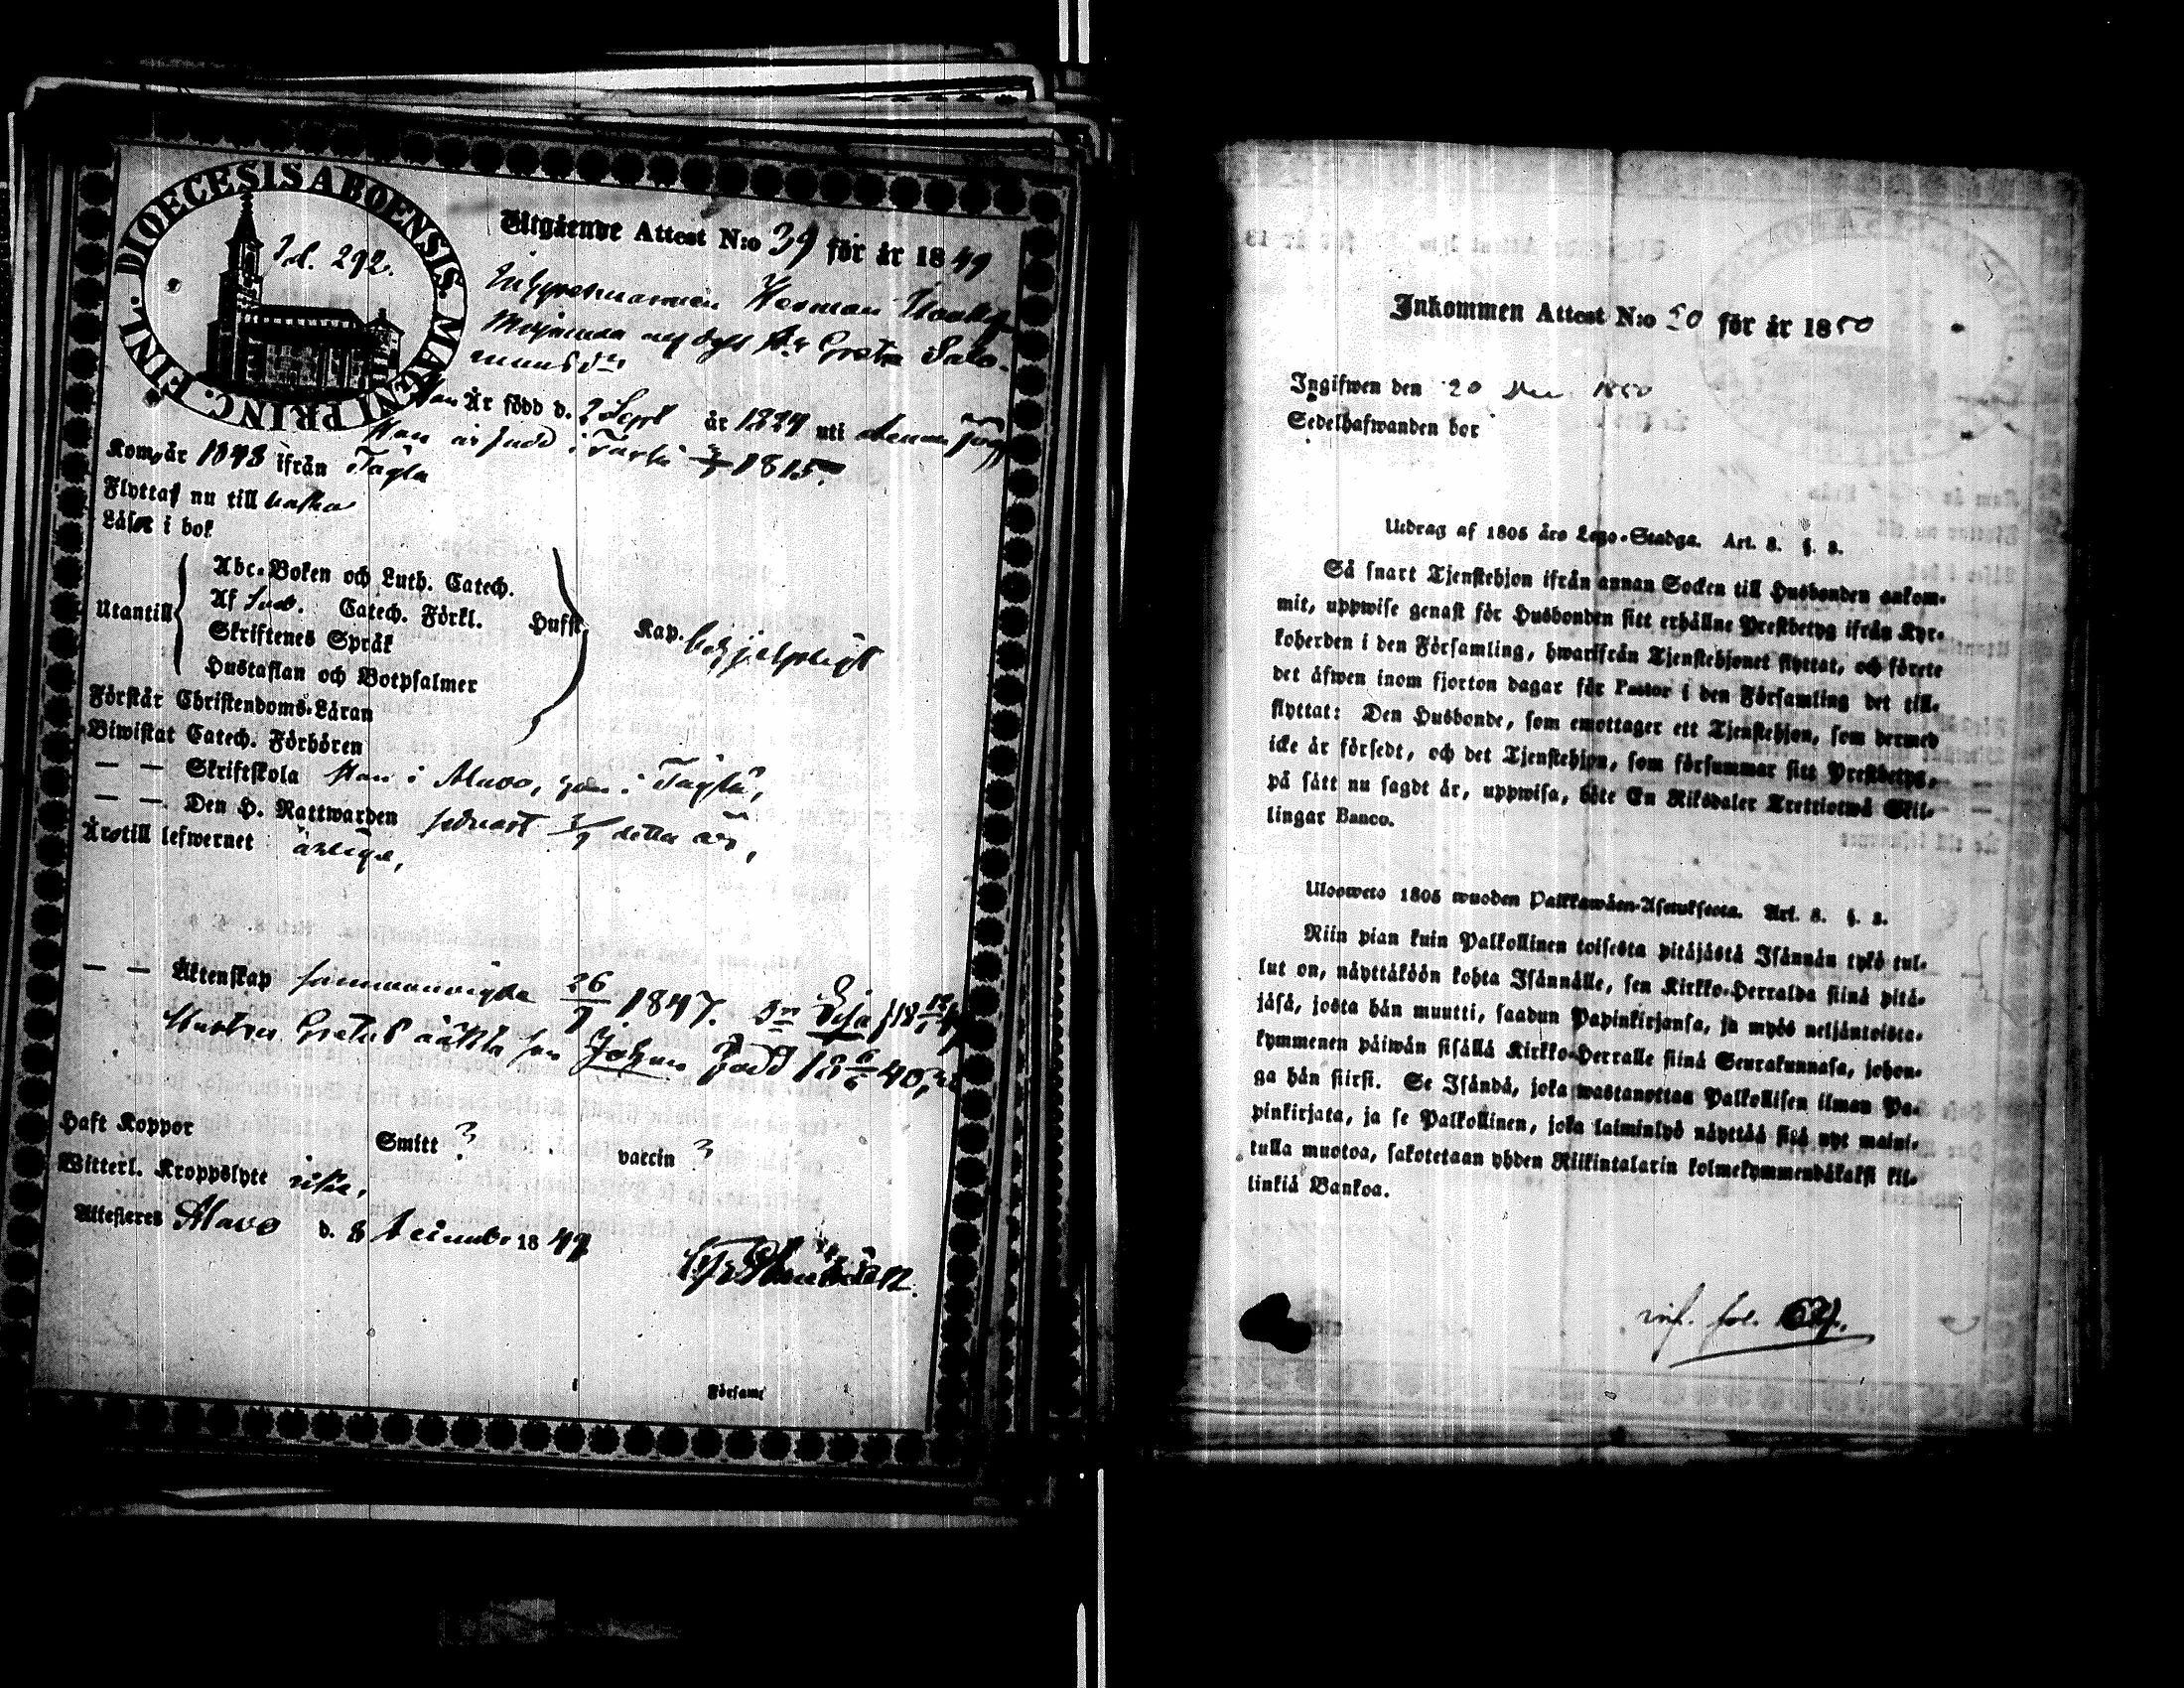 DIOECESIS ABOENSIS. MAGNI PRINC. FINL.
Id. 292.
Utgående Attest N:o 39 för år 1849
Inhysesmannen Herman
Greta Salo-
monsdr
Han Är född d. 2 Sept år 1824 uti denna förs
Hon är född i 1815.
Kom år 1848 ifrån Tåysa
Flyttas nu till
Läser i bok
Utantill
Abc-Boken och Luth. Catech.
Af Sveb. Catech. Förkl. Hufst. Kap. behjelpligt
Skriftenes Språk
Hustaflan och Botpsalmer
Förstår Christendoms-Läran
Biwistat Catech. Förhören
— — Skriftskola Han i Alavo, hon i Tåysä,
— — Den H. Nattwarden sednast detta år,
Är till lefwernet ärliga,
— — Äktenskap sammanvigde 26 1847. Dr
Hustru Gretas oäkta son Johan född 18 6/6 40,
Haft Koppor Smitt ? vaccin ?
Witterl. Kroppslyte icke,
Attesteres Alavo d. 8 December 1849
Församl
Inkommen Attest N:o 50 för år 1850
Ingifwen den 20 Dec 1850
Sedelhafwanden bor
Utdrag af 1805 års Lego-Stadga. Art. 8. §. 8.
Så snart Tjenstehjon ifrån annan Socken till Husbonden ankom-
mit, uppwise genast för Husbonden sitt erhållne Prestbetyg ifrån Kyr-
koherden i den Församling, hwarifrån Tjenstehjonet flyttat, och förete
det äfwen inom fjorton dagar för Pastor i den Församling det till-
flyttat: Den Husbonde, som emottager ett Tjenstehjon, som dermed
icke är försedt, och det Tjenstehjon, som försummar sitt Prestbetyg,
på sätt nu sagdt är, uppwisa, böte En Riksdaler Trettiotwå Skil-
lingar Banco.
Ulosweto 1805 wuoden Palkkawäen-Asetuksesta. Art. 8. §. 8.
Niin pian kuin Palkollinen toisesta pitäjästä Isännän tykö tul-
lut on, näyttäköön kohta Isännälle, sen Kirkko-Herralda siinä pitä-
jäsä, josta hän muutti, saadun Papinkirjansa, ja myös neljäntoista-
kymmenen päiwän sisällä Kirkko-Herralle siinä Seurakunnasa, johon-
ga hän siirsi. Se Isändä, joka wastanottaa Palkollisen ilman Pa-
pinkirjata, ja se Palkollinen, joka laiminlyö näyttää sitä nyt maini-
tulla muotoa, sakotetaan yhden Riikintalarin kolmekymmendäkaksi kil-
linkiä Bankoa.
inf. fol.